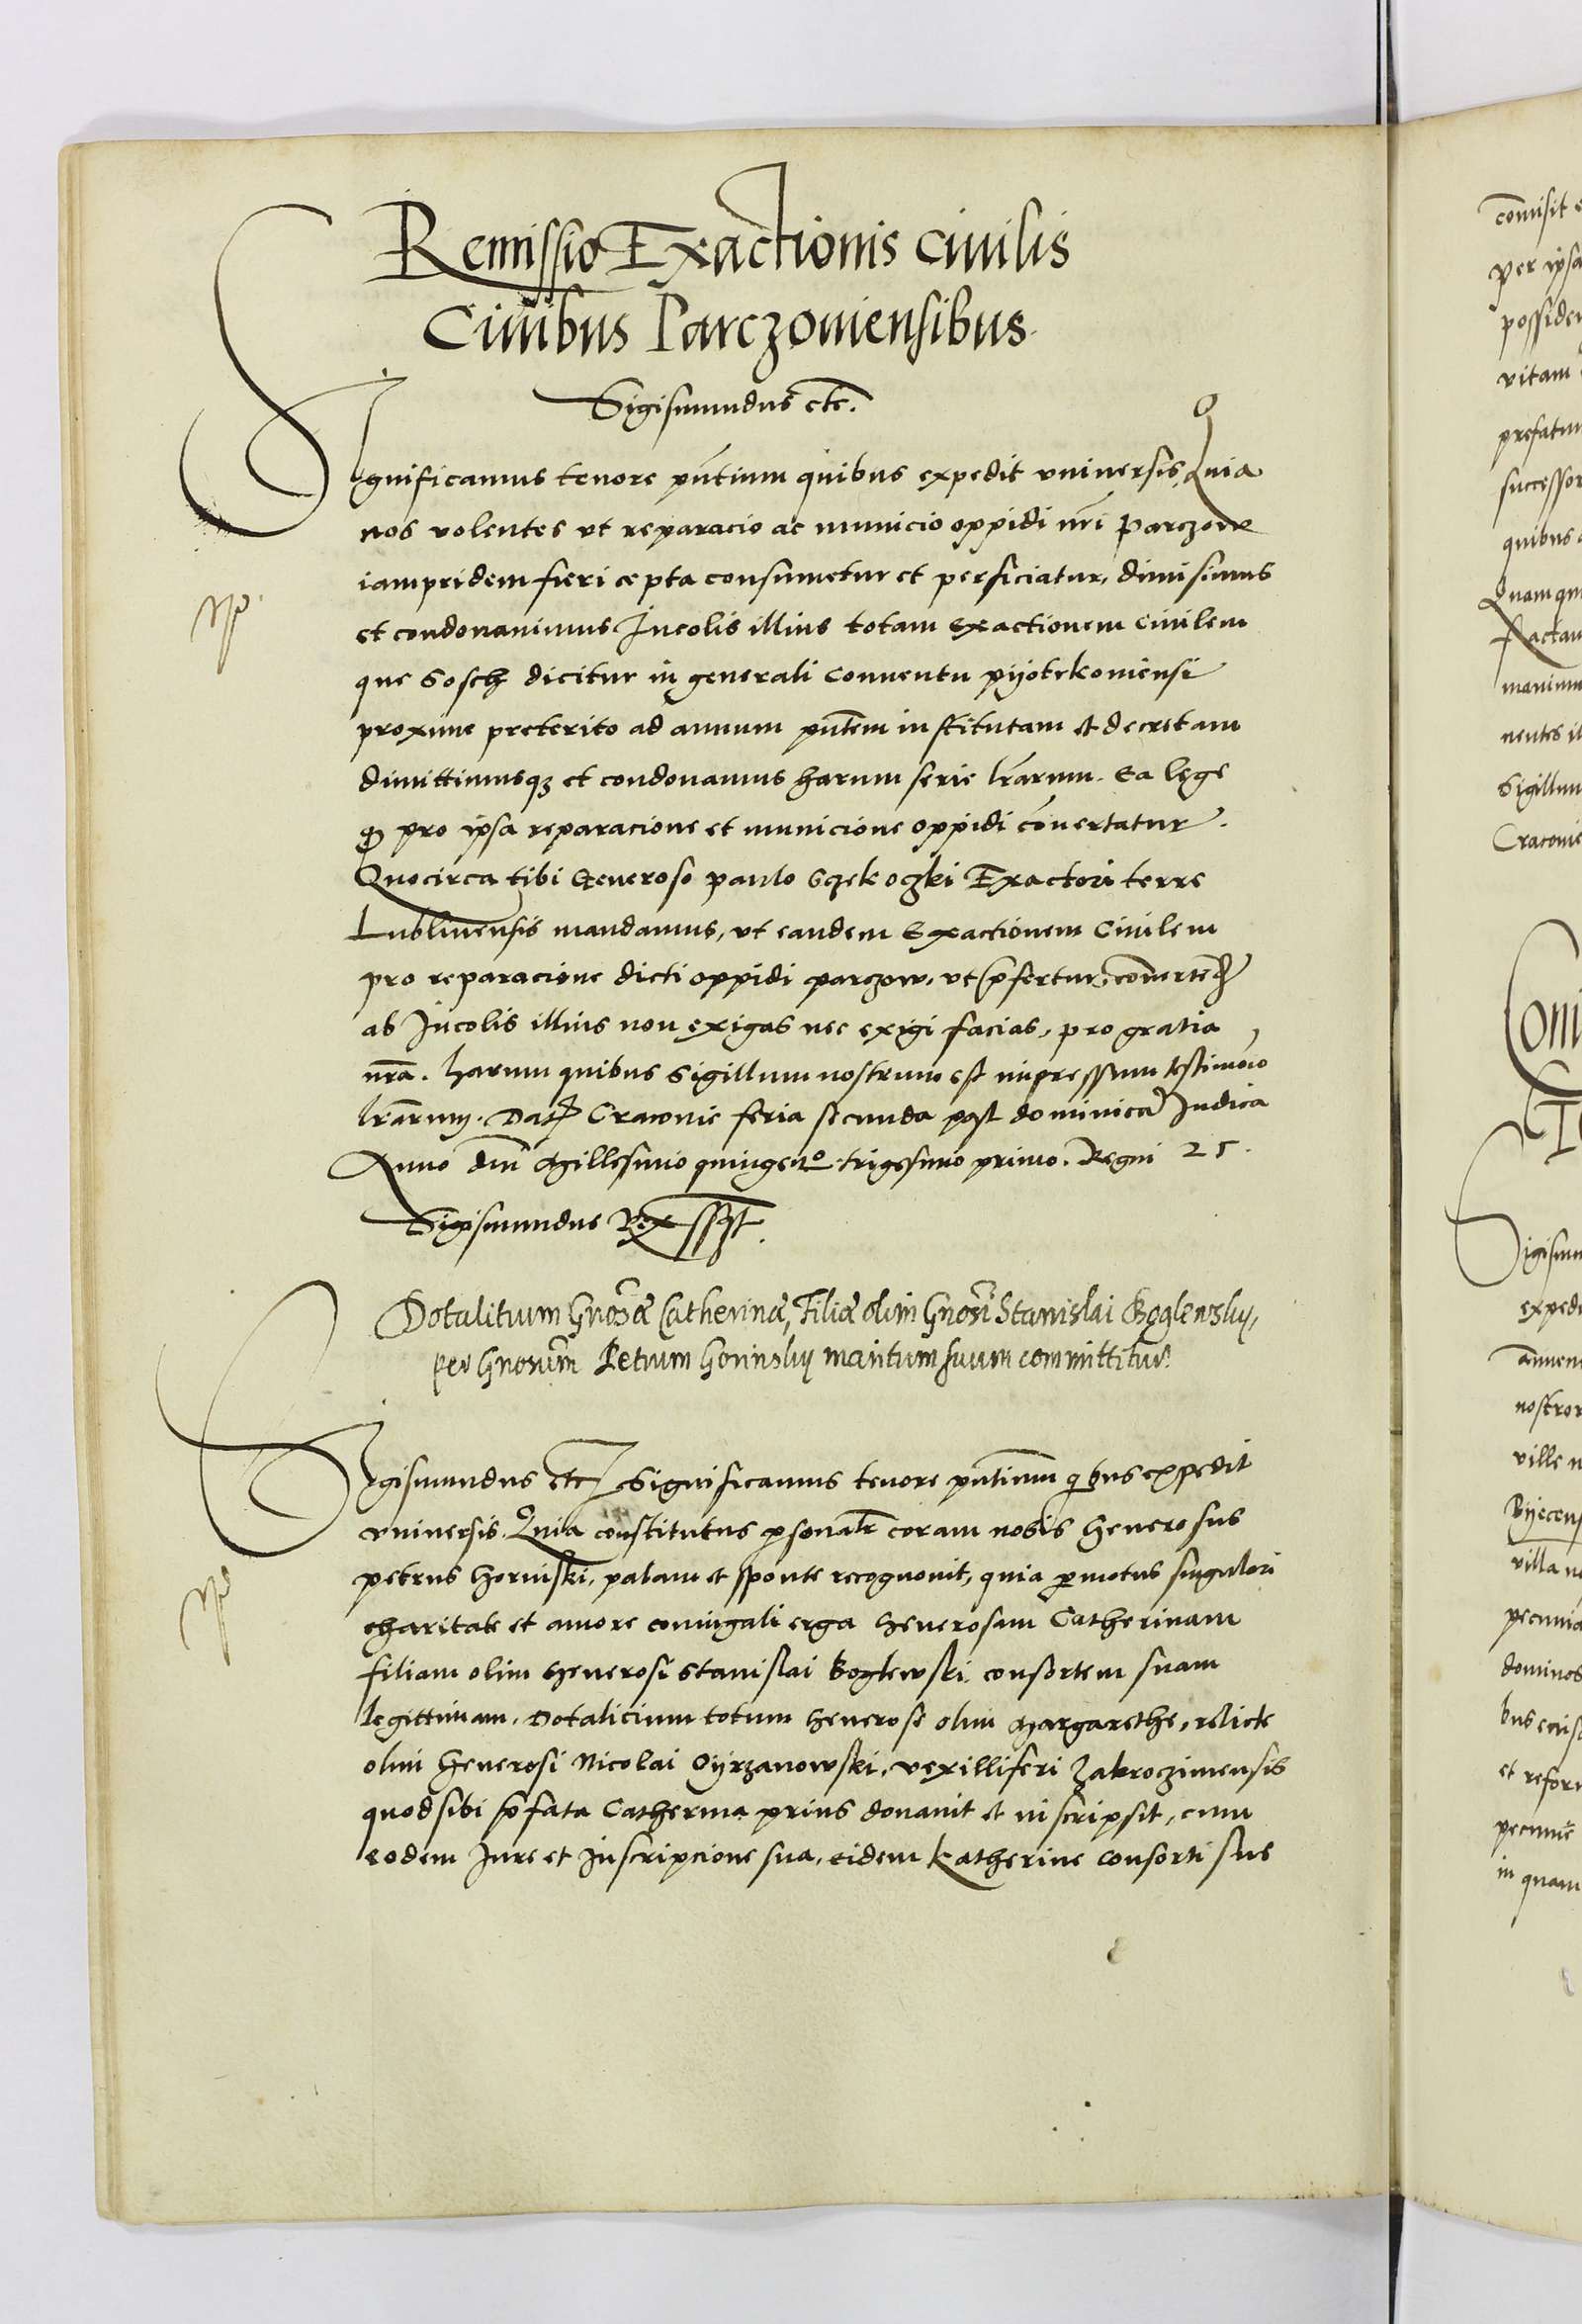 Remissio Exactionis Civilis
Civibus Parczoviensibus
Sigismundus etc.
Significamus tenore pntium quibus expedit universis, Quia
nos volentes ut reparacio ac municio oppidi nri Parczow
iampridem fieri cepta consumetur et perficiatur, dimisimus
et condonavimus Incolis illius totam exactionem Civilem
que Sosch dicitur in generali Conventu pyotrkoviensi
proxime preterito ad annum pntem institutam et decretam
dimittimusq et condonamus harum serie lrarum. Ea lege
q pro ipsa reparacione et municione oppidi convertatur.
Quocirca tibi Generoso paulo Sczekoczki Exactori terre
Lublinensis mandamus, ut eandem Exactionem Civilem
pro reparacione dicti oppidi parczow, ut pfertur, convertend
ab Incolis illius non exigas nec exigi facias, pro gratia
nra. harum quibus Sigillum nostrum est impressum testimonio
lrarum. Dat Cracovie feria secunda post dominica Judica
Anno dni Millesimo quingeto trigesimo primo. Regni 25.
Sigismundus Rex sspt.
Dotalitium Gnosæ Catherinæ, Filiæ olim Gnosi Stanislai Boglewsky,
per Gnosum Petrum Gorinsky maritum suum committitur.
Sigismundus etc Significamus tenore pntium qbus expedit
universis. Quia constitutus psonalr coram nobis Generosus
petrus Gorinski, palam et sponte recognovit, quia pmotus singulari
charitate et amore coniugali erga Generosam Catherinam
filiam olim Generosi Stanislai Boglewski consortem suam
legittimam, Dotalicium totum Generose olim Margarethe, relicte
olim Generosi Nicolai Oyrzanowski, vexilliferi Zakroczimensis
quod sibi pfata Catherina prius donavit et inscripsit, cum
eodem Jure et Inscripcione sua, eidem Katherine Consorti sue